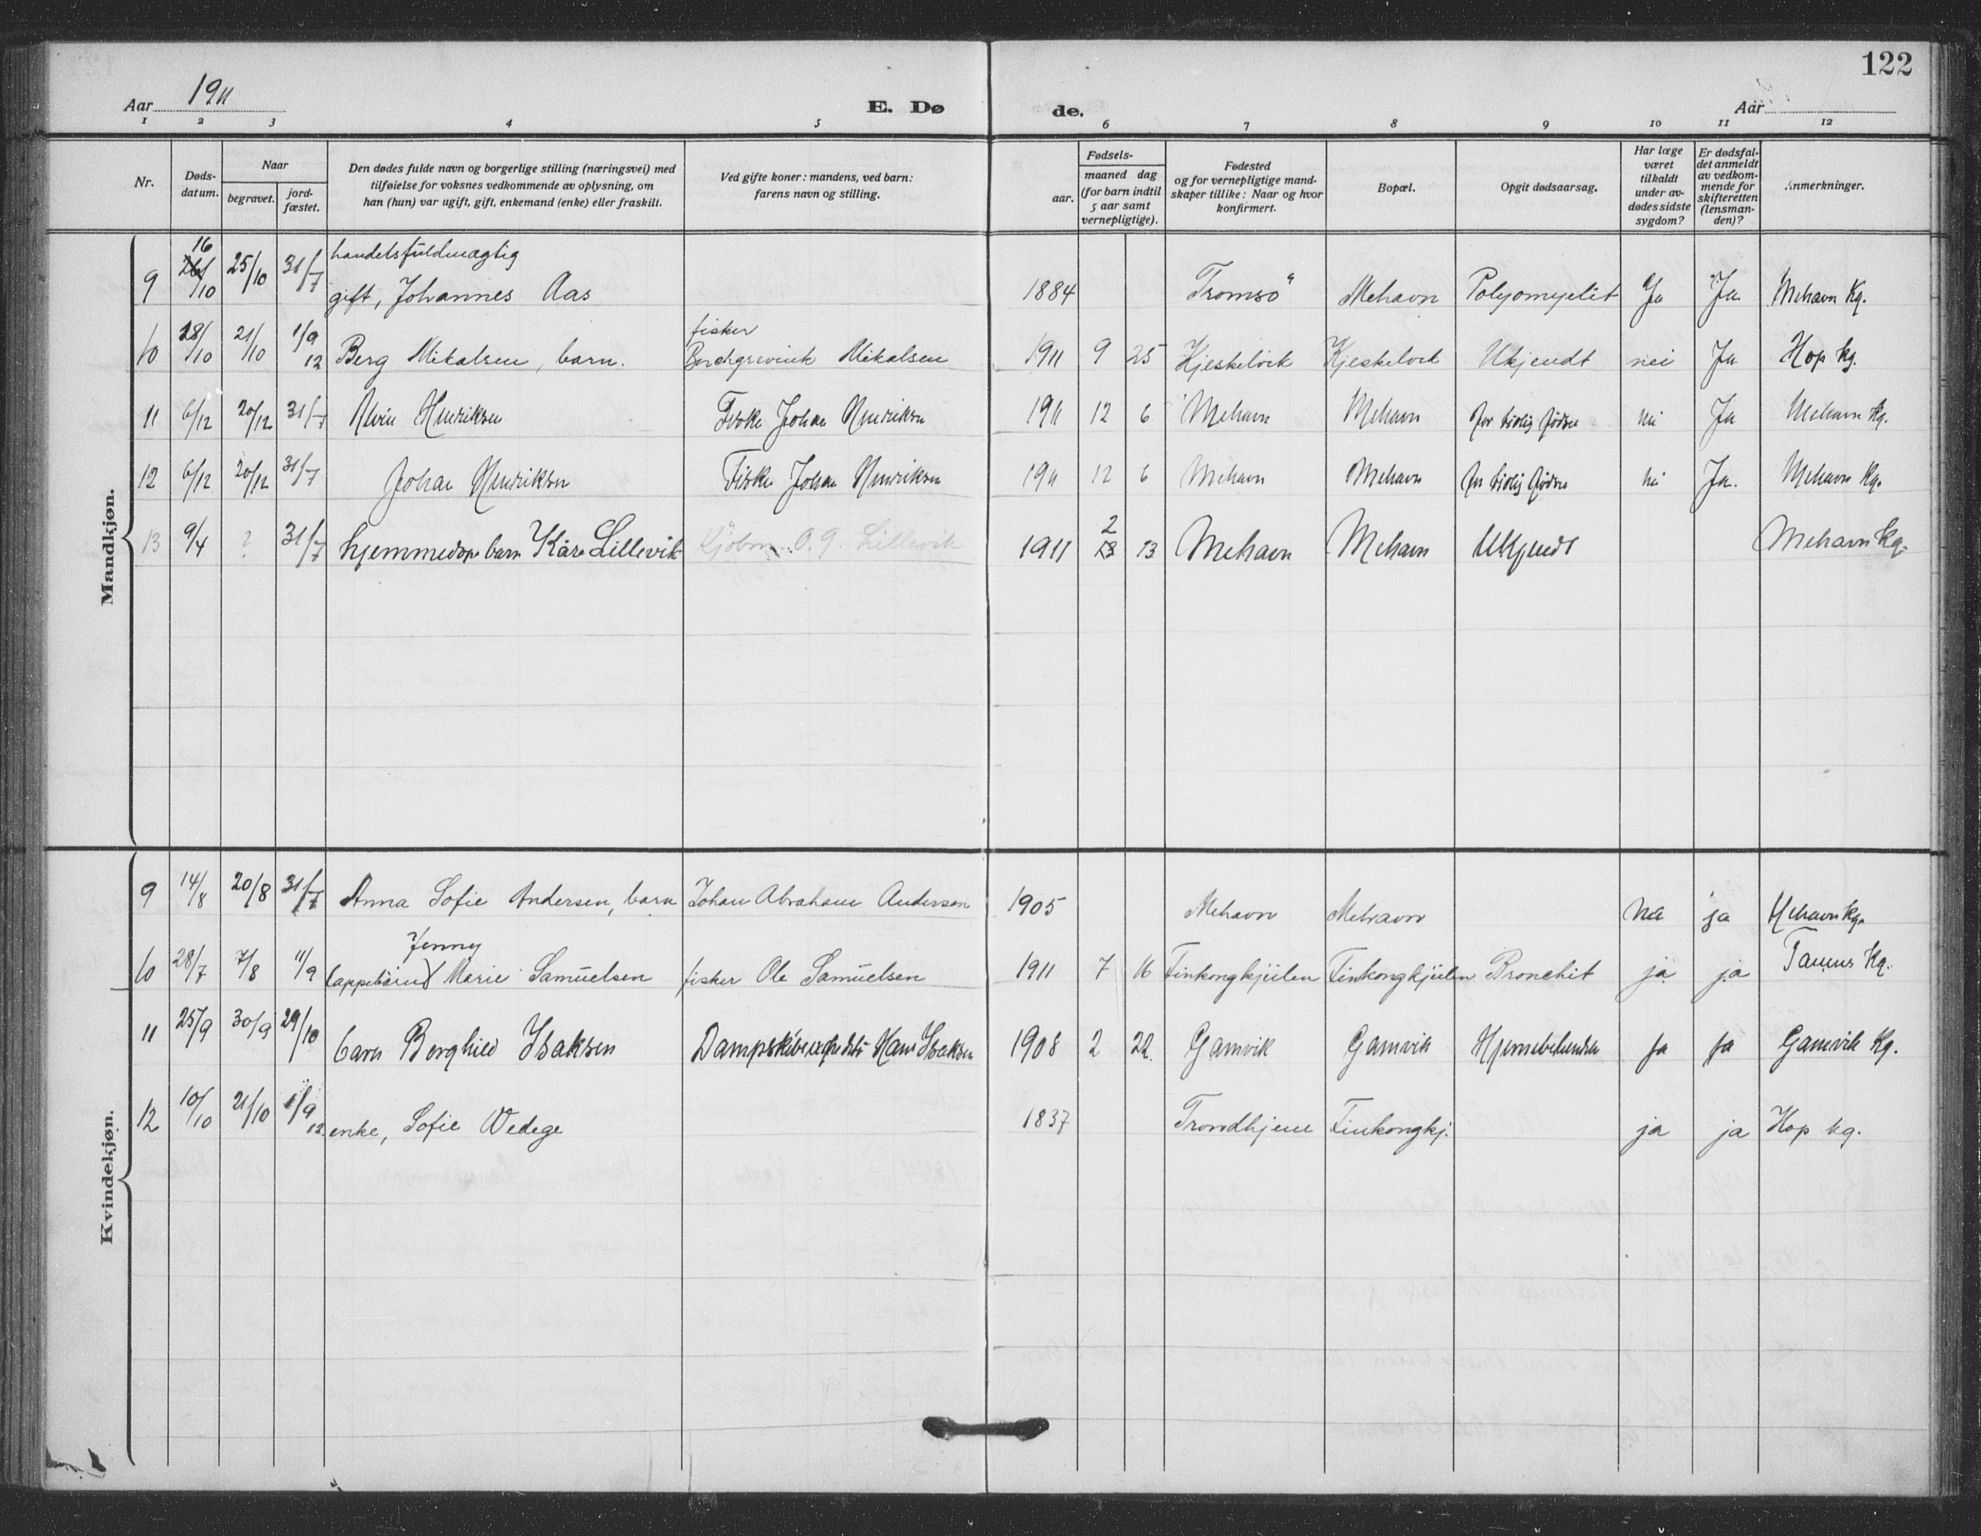 122
Aar 1911 E. Dø de. Aar
1 2 3 4 5 6 7 8 9 10 11 12
Nr. Døds-datum. Naar begravet. jord-fæstet. Den dødes fulde navn og borgerlige stilling (næringsvei) med tilføielse for voksnes vedkommende av oplysning, om han (hun) var ugift, gift, enkemand (enke) eller fraskilt. Ved gifte koner: mandens, ved barn: farens navn og stilling. Fødsels- aar. maaned dag (for barn indtil 5 aar samt vernepligtige). Fødested og for vernepligtige mand-skaper tillike: Naar og hvor konfirmert. Bopæl. Opgit dødsaarsag. Har læge været tilkaldt under av-dødes sidste sygdom? Er dødsfal-det anmeldt av vedkom-mende for skifteretten (lensman-den)? Anmerkninger.
Mandkjøn.
9 16/10 25/10 31/7 handelsfuldmægtig gift, Johannes Aas 1884 Tromsö Mehavn Polyomyelit Ja Ja Mehavn Kg.
10 18/10 21/10 1/9 12 Berg Mikalsen, barn. fisker Borchgrevink Mikalsen 1911 9 25 Kjeskelvik Kjeskelvik Ukjendt nei Ja Hop kg.
11 6/12 20/12 31/7 Alvin Henriksen Fiske Johan Henriksen 1911 12 6 Mehavn Mehavn for tidlig fødsel nei Ja Mehavn Kg.
12 6/12 20/12 31/7 Johan Henriksen Fiske Johan Henriksen 1911 12 6 Mehavn Mehavn for tidlig fødsel nei Ja. Mehavn Kg.
13 9/4 ? 31/7 hjemmedøpt barn Kåre Lillevik Kjöbm. O. J. Lillevik 1911 2 13 Mehavn Mehavn Ukjendt Mehavn Kg.
Kvindekjøn.
9 14/8 20/8 31/7 Anna Sofie Andersen, barn Johan Abraham Andersen 1905 Mehavn Mehavn nei ja Mehavn kg.
10 28/7 7/8 11/9 lappebarn Jenny Marie Samuelsen fisker Ole Samuelsen 1911 7 16 Finkongkjeilen Finkongkjeilen Bronchit ja ja Tanens Kg.
11 25/9 30/9 29/10 barn Borghild Isaksen Dampskibsexpeditør Hans Isaksen 1908 2 22. Gamvik Gamvik Hjernebetændelse Ja Ja Gamvik Kg.
12 10/10 21/10 1/9 12. enke, Sofie Wedege 1837 Trondhjem Finkongkj. ja ja Hop kg.